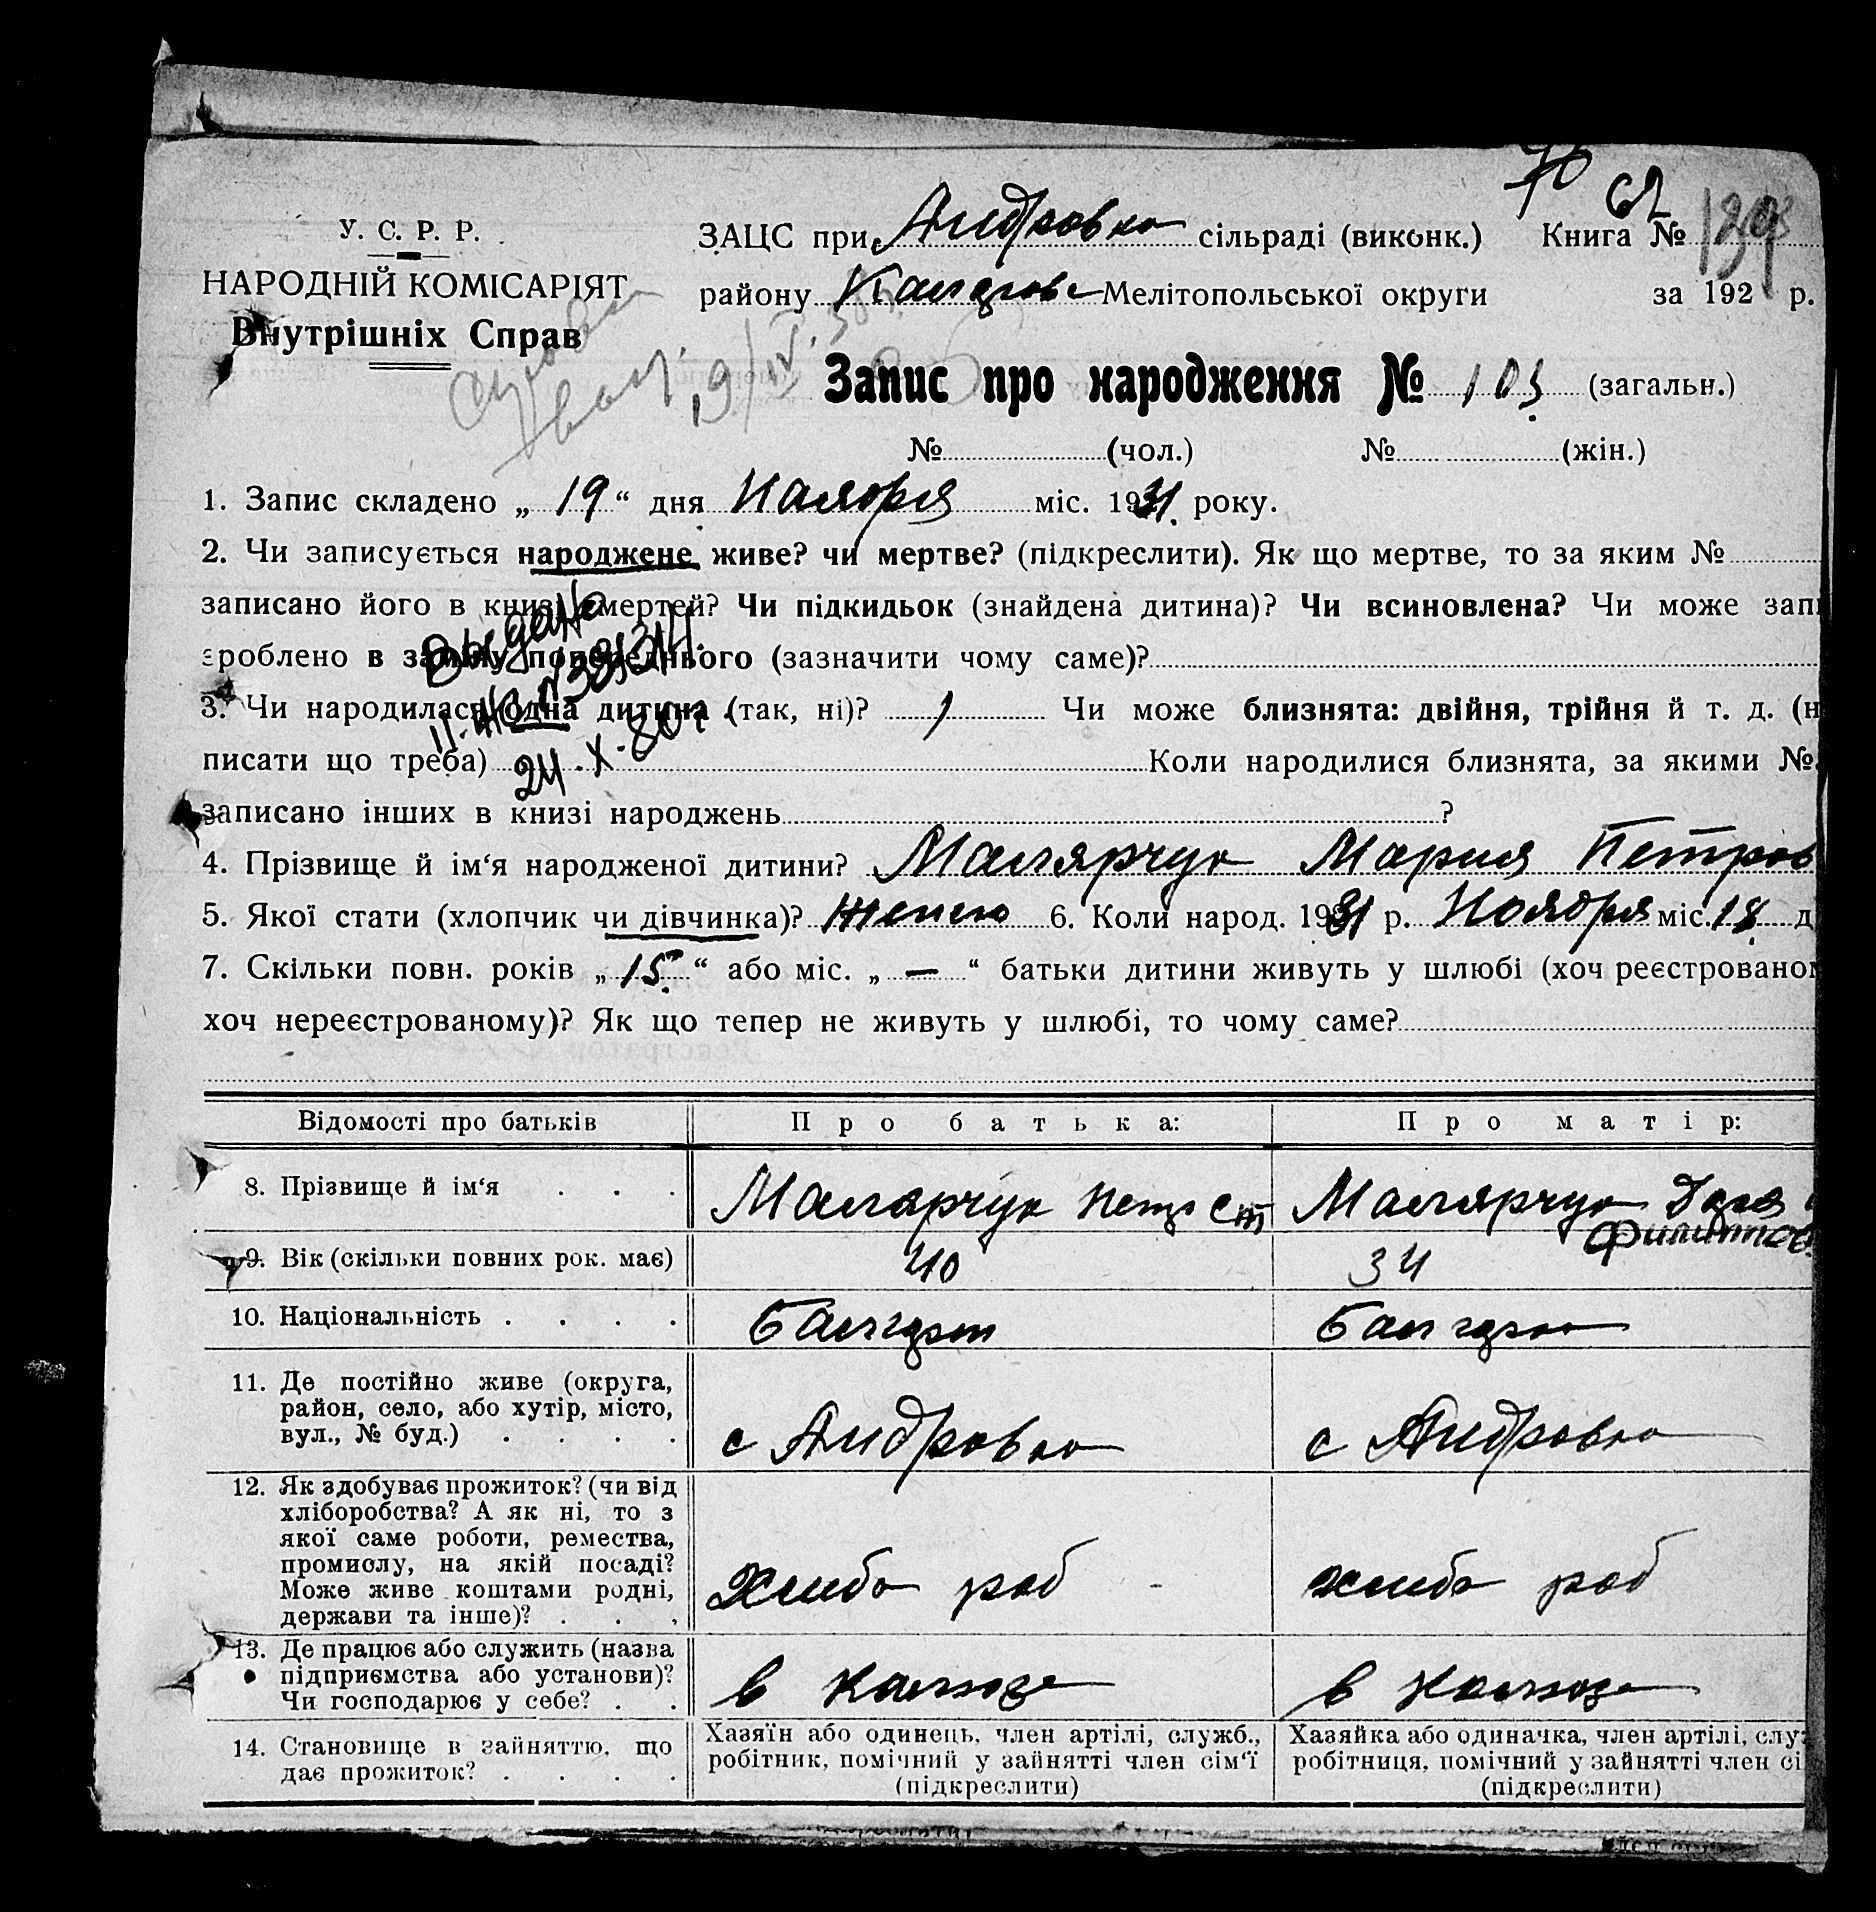 76 62
У. С. Р. Р.
НАРОДНІЙ КОМІСАРІЯТ
Внутрішніх Справ
ЗАЦС при Андровка сільраді (виконк.) Книга №
району Мелітопольської округи за 192 р.
Запис про народження № 103 (загальн.)
№ (чол.) № (жін.)
1. Запис складено „ 19 “ дня Наября міс. 1931 року.
2. Чи записується народжене живе? чи мертве? (підкреслити). Як що мертве, то за яким №
записано його в книзі смертей? Чи підкидьок (знайдена дитина)? Чи всиновлена? Чи може запи
зроблено в заміну попереднього (зазначити чому саме)?
Выдано
3. Чи народилась одна дитина (так, ні)? 1 Чи може близнята: двійня, трійня й т. д. (н
24.X.80г
писати що треба) Коли народилися близнята, за якими №
записано інших в книзі народжень ?
4. Прізвище й ім‘я народженої дитини? Малярчук Мария Петров
5. Якої стати (хлопчик чи дівчинка)? 6. Коли народ. 1931 р. Ноября міс. 18 д
7. Скільки повн. років „ 15 “ або міс. „ — “ батьки дитини живуть у шлюбі (хоч реєстрованом
хоч нереєстрованому)? Як що тепер не живуть у шлюбі, то чому саме?
Відомості про батьків Про батька: Про матір:
8. Прізвище й ім‘я . . . Малярчук Петр Ст Малярчук
Филиппов
9. Вік (скільки повних рок. має) 40 34
10. Національність . . . . Балгарин Балгарка
11. Де постійно живе (округа,
район, село, або хутір, місто,
вул., № буд.) . . . . с Андровка с Андровка
12. Як здобуває прожиток? (чи від
хліборобства? А як ні, то з
якої саме роботи, ремества,
промислу, на якій посаді?
Може живе коштами родні,
держави та інше)? . . . Хлибо роб хлибо роб
13. Де працює або служить (назва
підприємства або установи)?
Чи господарює у себе? . . в калхозе в калхозе
14. Становище в зайняттю, що
дає прожиток? . . . .
Хазяїн або одинець, член артілі, служб.,
робітник, помічний у зайнятті член сім‘ї
(підкреслити)
Хазяйка або одиначка, член артілі, слу
робітниця, помічний у зайнятті член сі
(підкреслити)